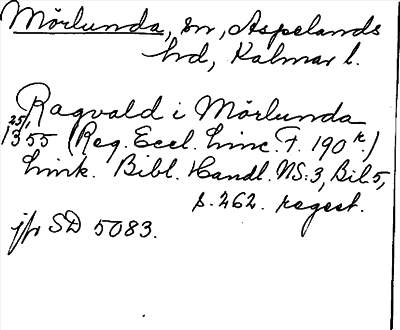 Mörlunda, sn, Aspelands
hd, Kalmar l.
Ragvald i Mörlunda
25/1 1355 (Reg. Eccl. Linc. F. 190 r.)
Link. Bibl. Handl. NS:3, Bil 5,
s. 262. regest.
jfr SD 5083.